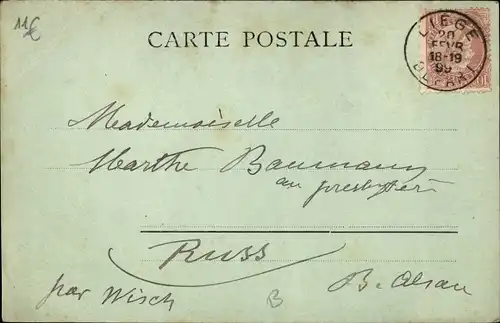 11€
CARTE POSTALE
LIEGE
20
FEVR
18-19
99
DEPART
10
Mademoiselle
Marthe Baumann
au presbytère
Russ
par Wisch
B. Alsace
B